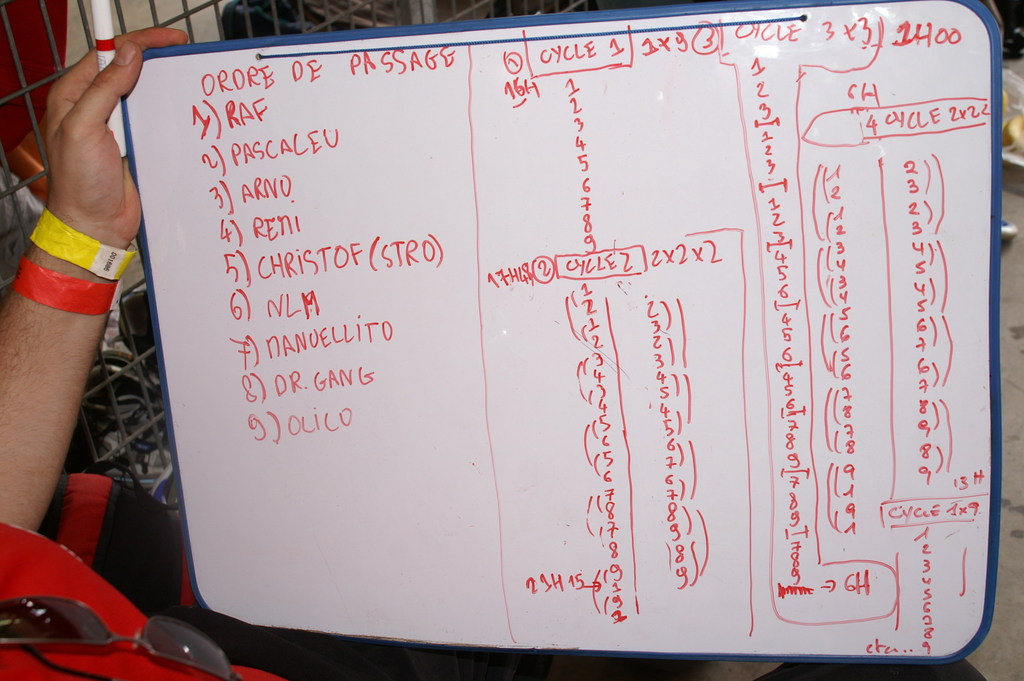 ORDRE DE PASSAGE
1) RAF
2) PASCALEU
3) ARNO
4) REMI
5) CHRISTOF (STRO)
6) NLM
7) MANUELLITO
8) DR. GANG
9) OLICO
1 CYCLE 1 1x9
16H
1
2
3
4
5
6
7
8
9
2 CYCLE 2 2x2x2
1 2
2 3
1 2
2 3
3 4
4 5
3 4
4 5
5 6
6 7
5 6
6 7
7 8
8 9
7 8
8 9
9
1
9
1
3 CYCLE 3x3 1H00
1
2
3
1
2
3
1
2
3
4
5
6
4
5
6
4
5
6
7
8
9
7
8
9
7
8
9
→ 6H
6H
4 CYCLE 2x2
1 2
2 3
1 2
2 3
3 4
4 5
3 4
4 5
5 6
6 7
5 6
6 7
7 8
8 9
7 8
8 9
9
1
9
1
13H
CYCLE 1x9
1
2
3
4
5
6
7
8
9
etc..